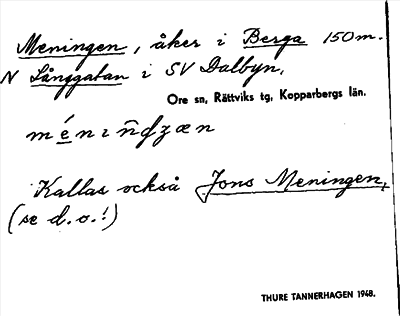 Meningen, åker i Berga 150m.
N Långgatan i SV Dalbyn.
Ore sn, Rättviks tg, Kopparbergs län.
Kallas också Jons Meningen,
(se d.o.!)
THURE TANNERHAGEN 1948.